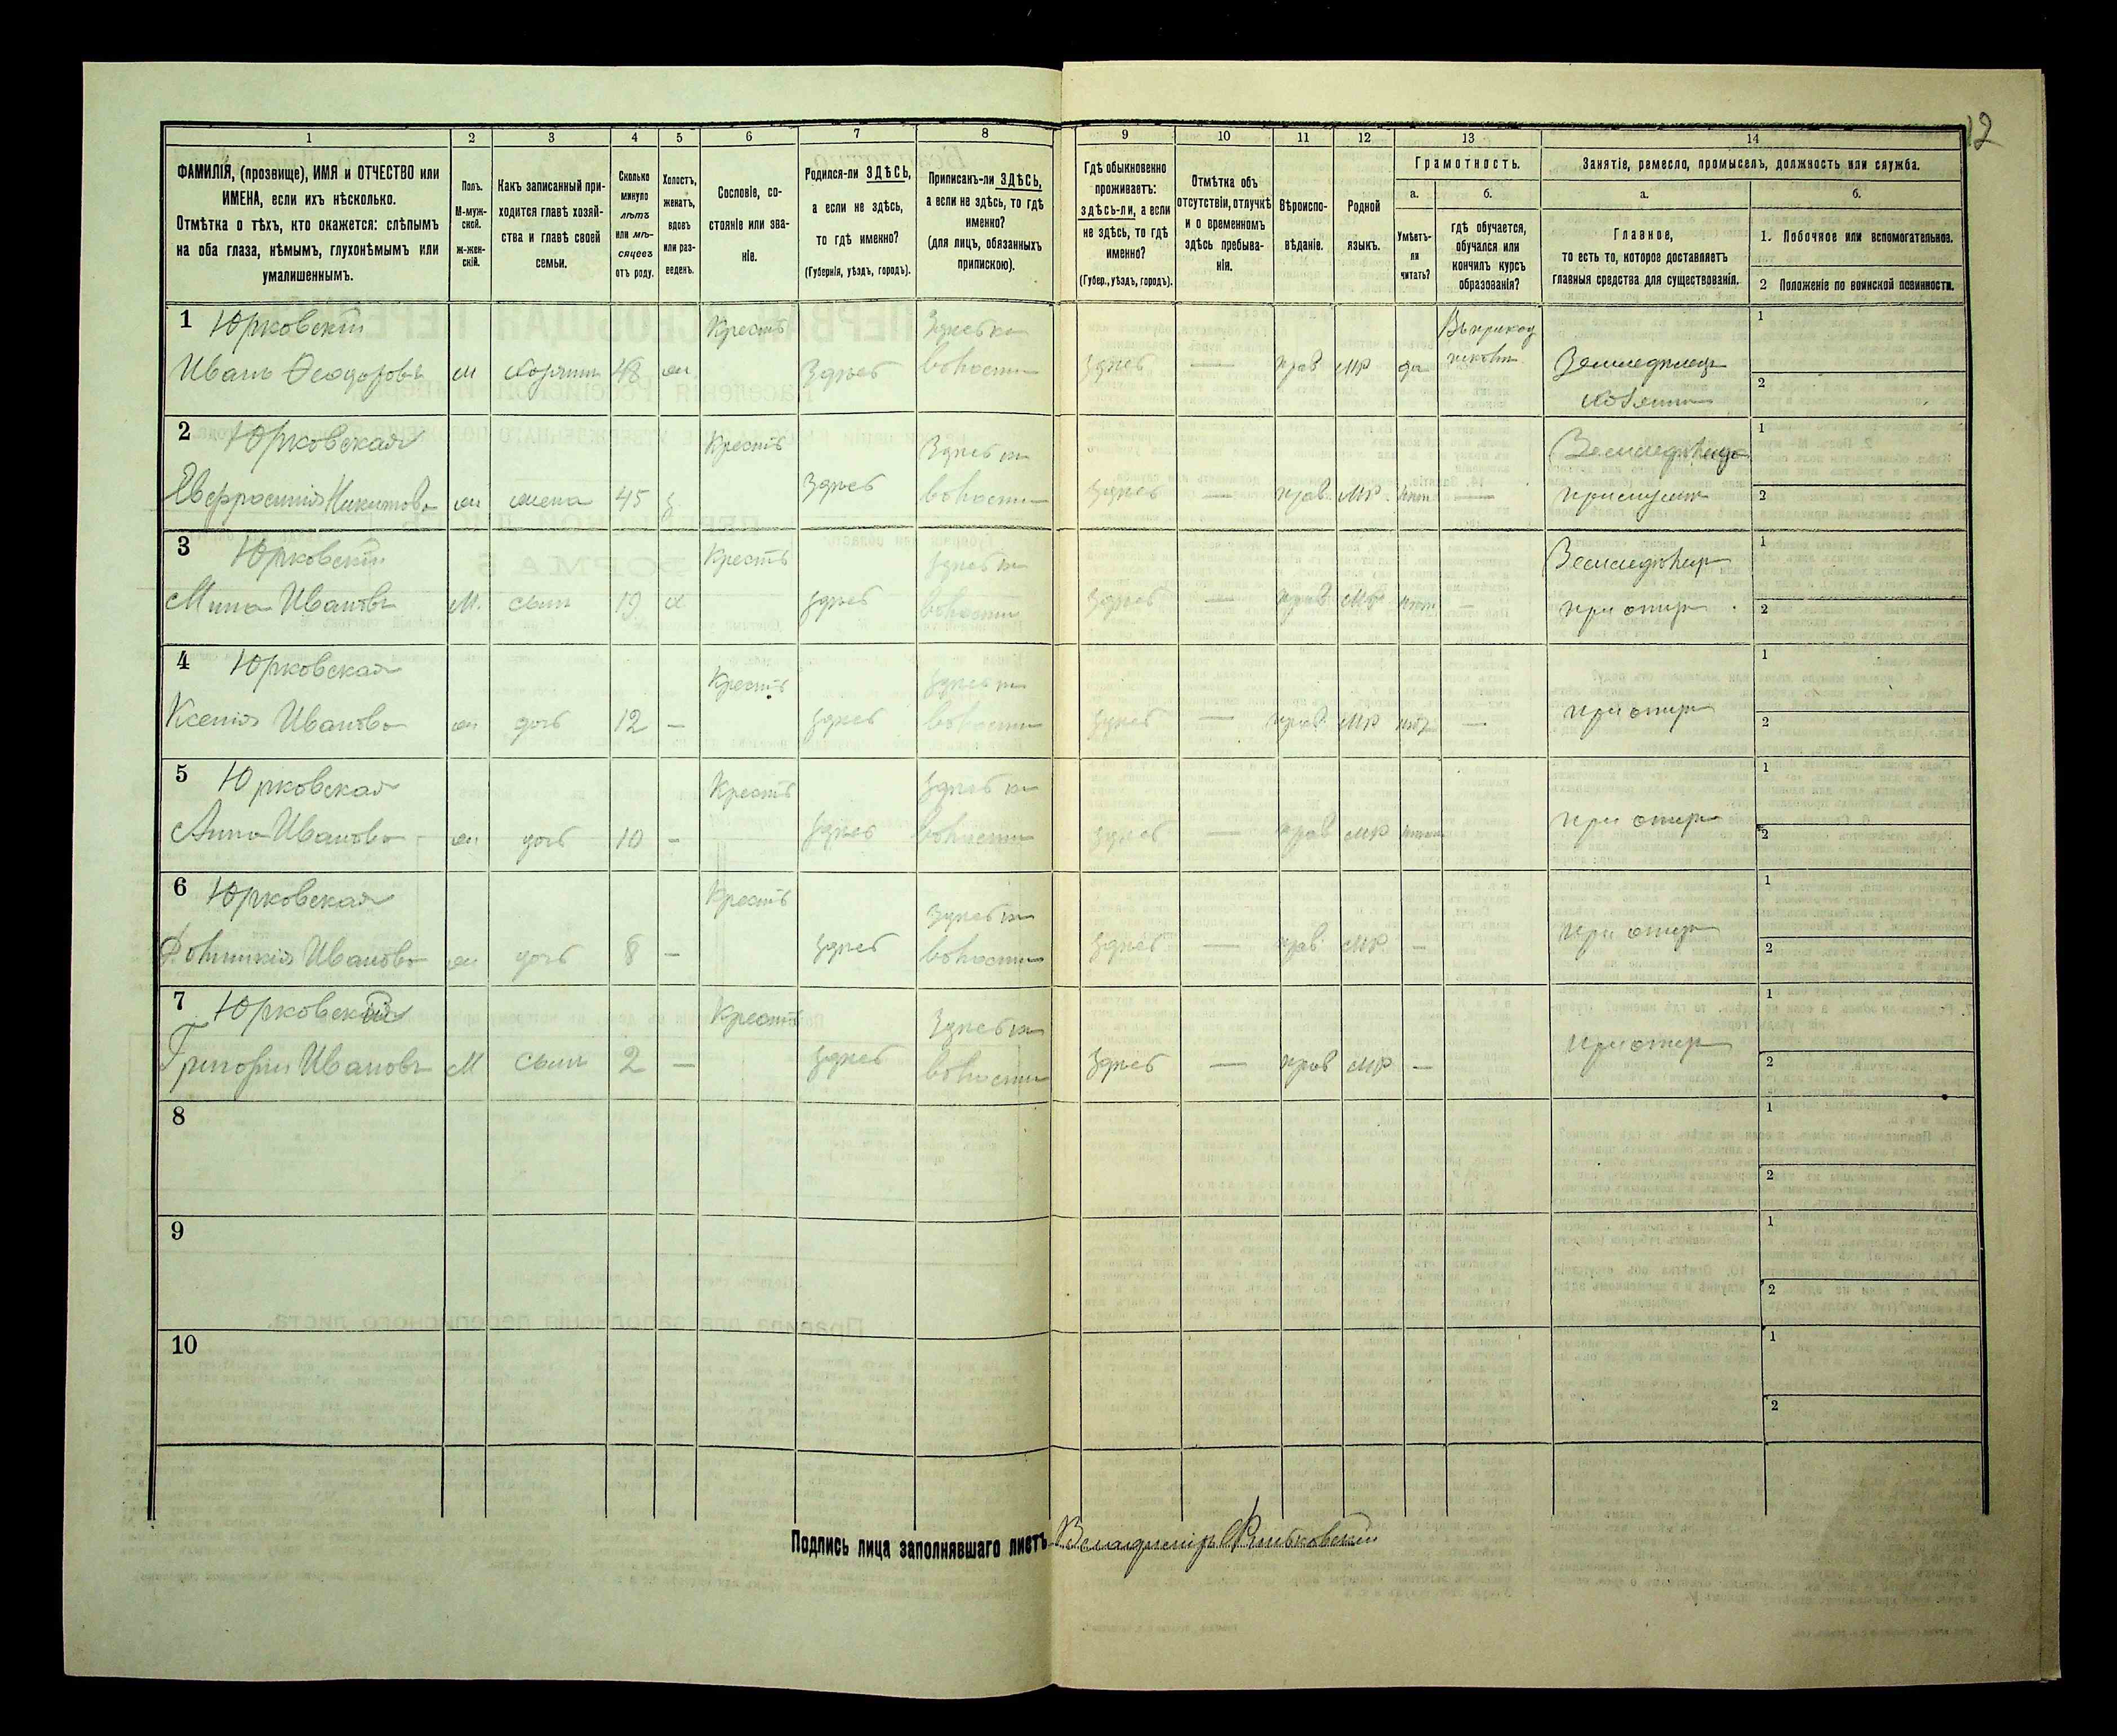 12
1 2 3 4 5 6 7 8 9 10 11 12 13 14
ФАМИЛІЯ, (прозвище), ИМЯ и ОТЧЕСТВО или
ИМЕНА, если ихъ нѣсколько.
Отмѣтка о тѣхъ, кто окажется: слѣпымъ
на оба глаза, нѣмымъ, глухонѣмымъ или
умалишеннымъ.
Полъ.
М-муж-
ской.
Ж-жен-
скій.
Какъ записанный при-
ходится главѣ хозяй-
ства и главѣ своей
семьи.
Сколько
минуло
лѣтъ
или мѣ-
сяцевъ
отъ роду.
Холостъ,
женатъ,
вдовъ
или раз-
веденъ.
Сословіе, со-
стояніе или зва-
ніе.
Родился-ли ЗДѢСЬ,
а если не здѣсь,
то гдѣ именно?
(Губернія, уѣздъ, городъ).
Приписанъ-ли ЗДѢСЬ,
а если не здѣсь, то гдѣ
именно?
(для лицъ, обязанныхъ
припискою).
Гдѣ обыкновенно
проживаетъ:
здѣсь-ли, а если
не здѣсь, то гдѣ
именно?
(Губер., уѣздъ, городъ).
Отмѣтка объ
отсутствіи, отлучкѣ
и о временномъ
здѣсь пребыва-
ніи.
Вѣроиспо-
вѣданіе.
Родной
языкъ.
Грамотность.
а. б.
Умѣетъ-
ли
читать?
гдѣ обучается,
обучался или
кончилъ курсъ
образованія?
Занятіе, ремесло, промыселъ, должность или служба.
а. б.
Главное,
то есть то, которое доставляетъ
главныя средства для существованія.
1. Побочное или вспомогательное.
2 Положеніе по воинской повинности.
1 Юрковскій Крестъ Въ приход 1
Иванъ Ѳеодоровъ м хозяинъ 48 ж Здѣсь волости Здѣсь — прав мр да школѣ Земледѣлецъ
хозяинъ 2
2 Юрковская Крестъ Земледѣлица 1
Евфросинія Никитова ж жена 45 з Здѣсь волости Здѣсь — прав мр нѣтъ — при мужѣ 2
3 Юрковскій Крестъ Земледѣлец 1
Мина Ивановъ М. сынъ 19 х здѣсь волости Здѣсь — прав мр нѣтъ — при отцѣ 2
4 Юрковская Крестъ 1
Ксенія Иванова ж дочь 12 — здѣсь волости здѣсь — прав мр нѣт — при отцѣ 2
5 Юрковская Крестъ 1
Анна Иванова ж дочь 10 — здѣсь волости здѣсь — прав мр нѣтъ при отцѣ 2
6 Юрковская Крестъ 1
Иванова ж дочь 8 — здѣсь волости здѣсь — прав мр — при отцѣ 2
7 Юрковскій Крестъ 1
Григорій Ивановъ М сынъ 2 — здѣсь волости здѣсь — прав мр — при отцѣ 2
8 1
2
9 1
2
10 1
2
Подпись лица заполнявшаго листъ